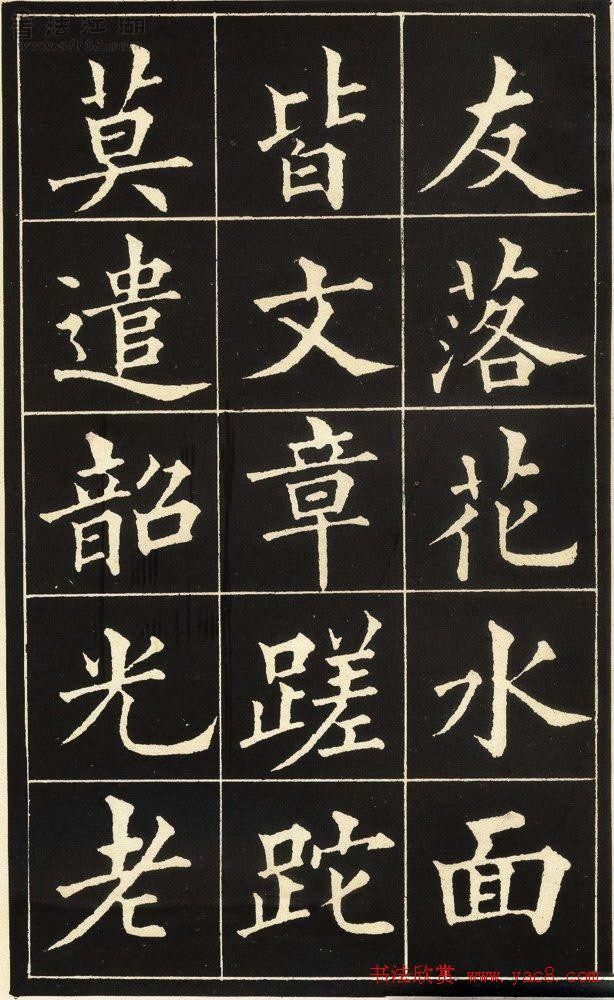 友落花水面
皆文章蹉跎
莫遣韶光老
书法江湖
www.sf108.com
书法欣赏 www.yac8.com